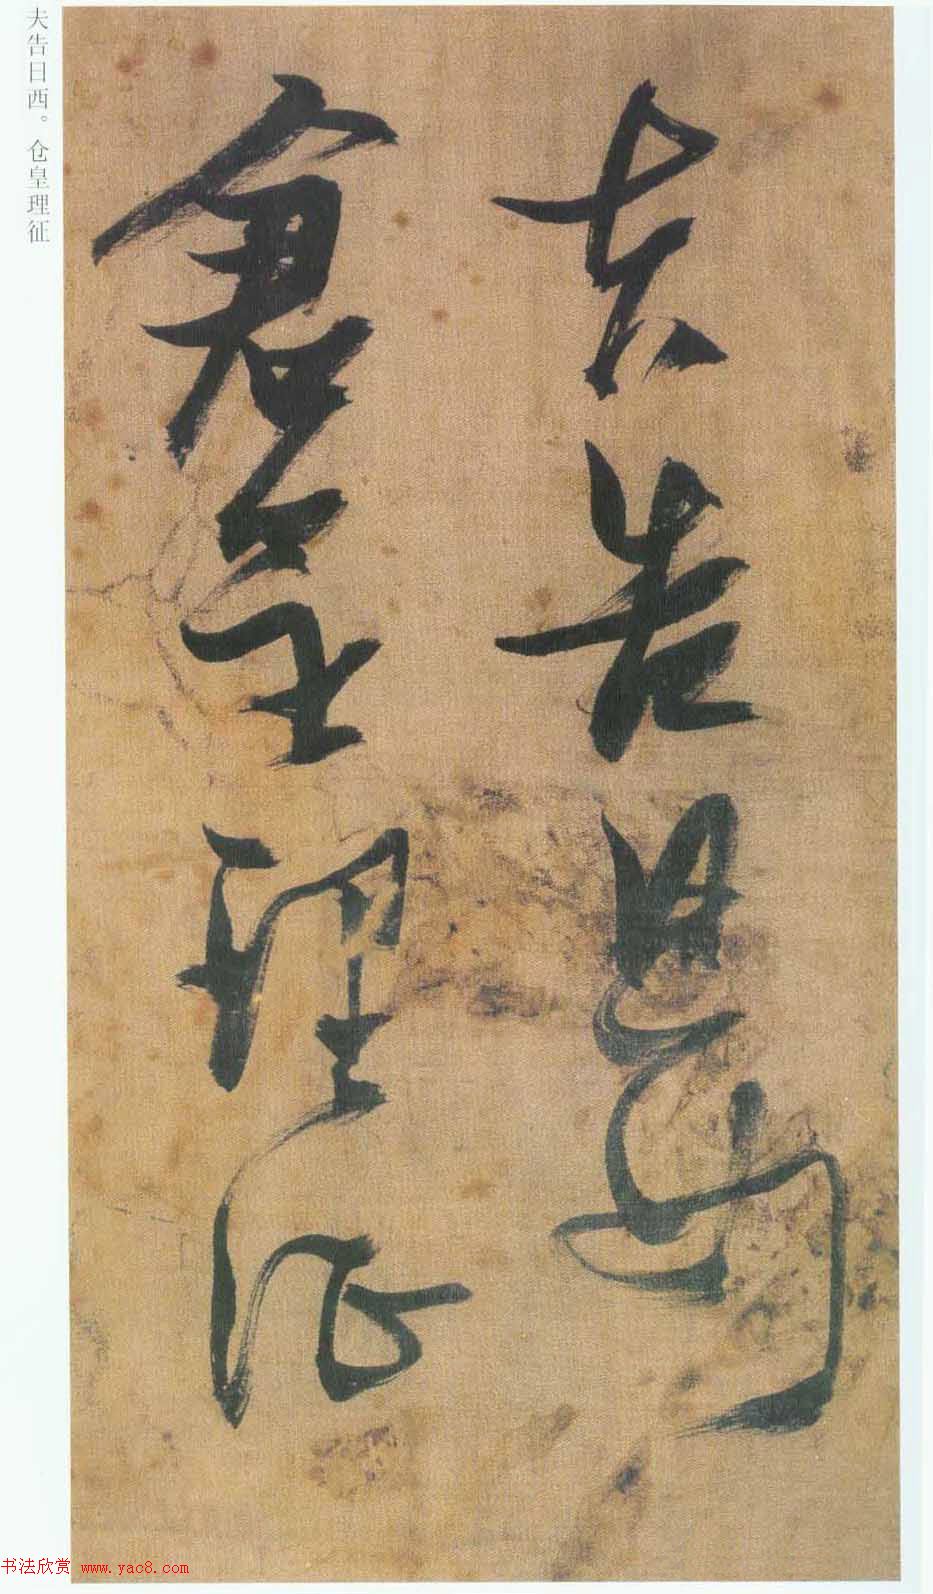 夫告日西
倉皇理征
夫告日西。仓皇理征
书法欣赏 www.yac8.com